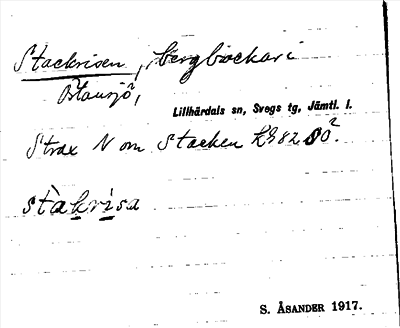 Stackrisen, bergbackar i
Östansjö,
Lillhärdals sn, Svegs tg, Jämtl. l.
Strax N om Stacken
stàkrisa
S. ÅSANDER 1917.